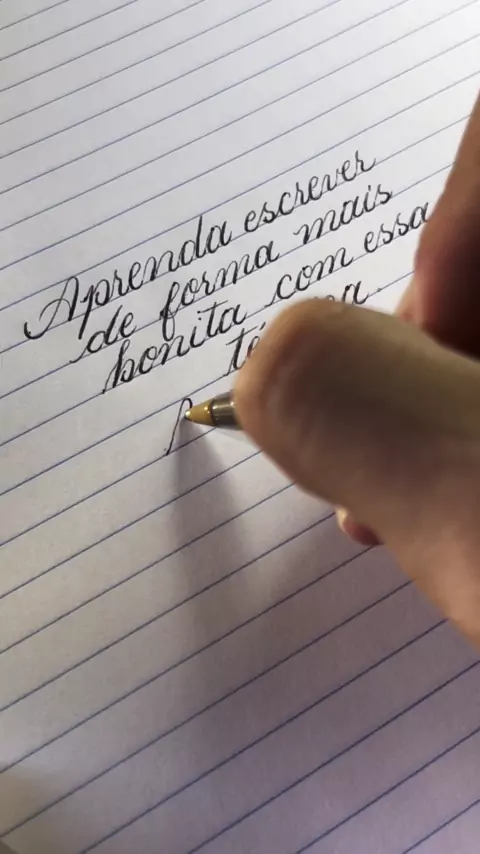 Aprenda escrever
de forma mais
bonita com essa